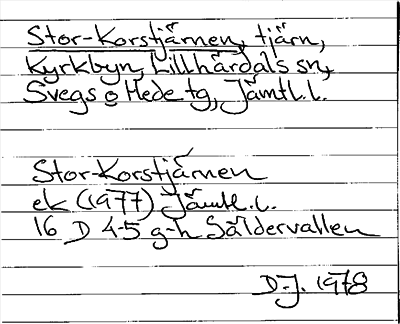 Stor-Korstjärnen, tjärn,
Kyrkbyn, Lillhärdals sn,
Svegs o Hede tg, Jämtl. l.
Stor-Korstjärnen
ek (1977) Jämtl. l.
16 D 4-5 g-h Säldervallen
D-J. 1978